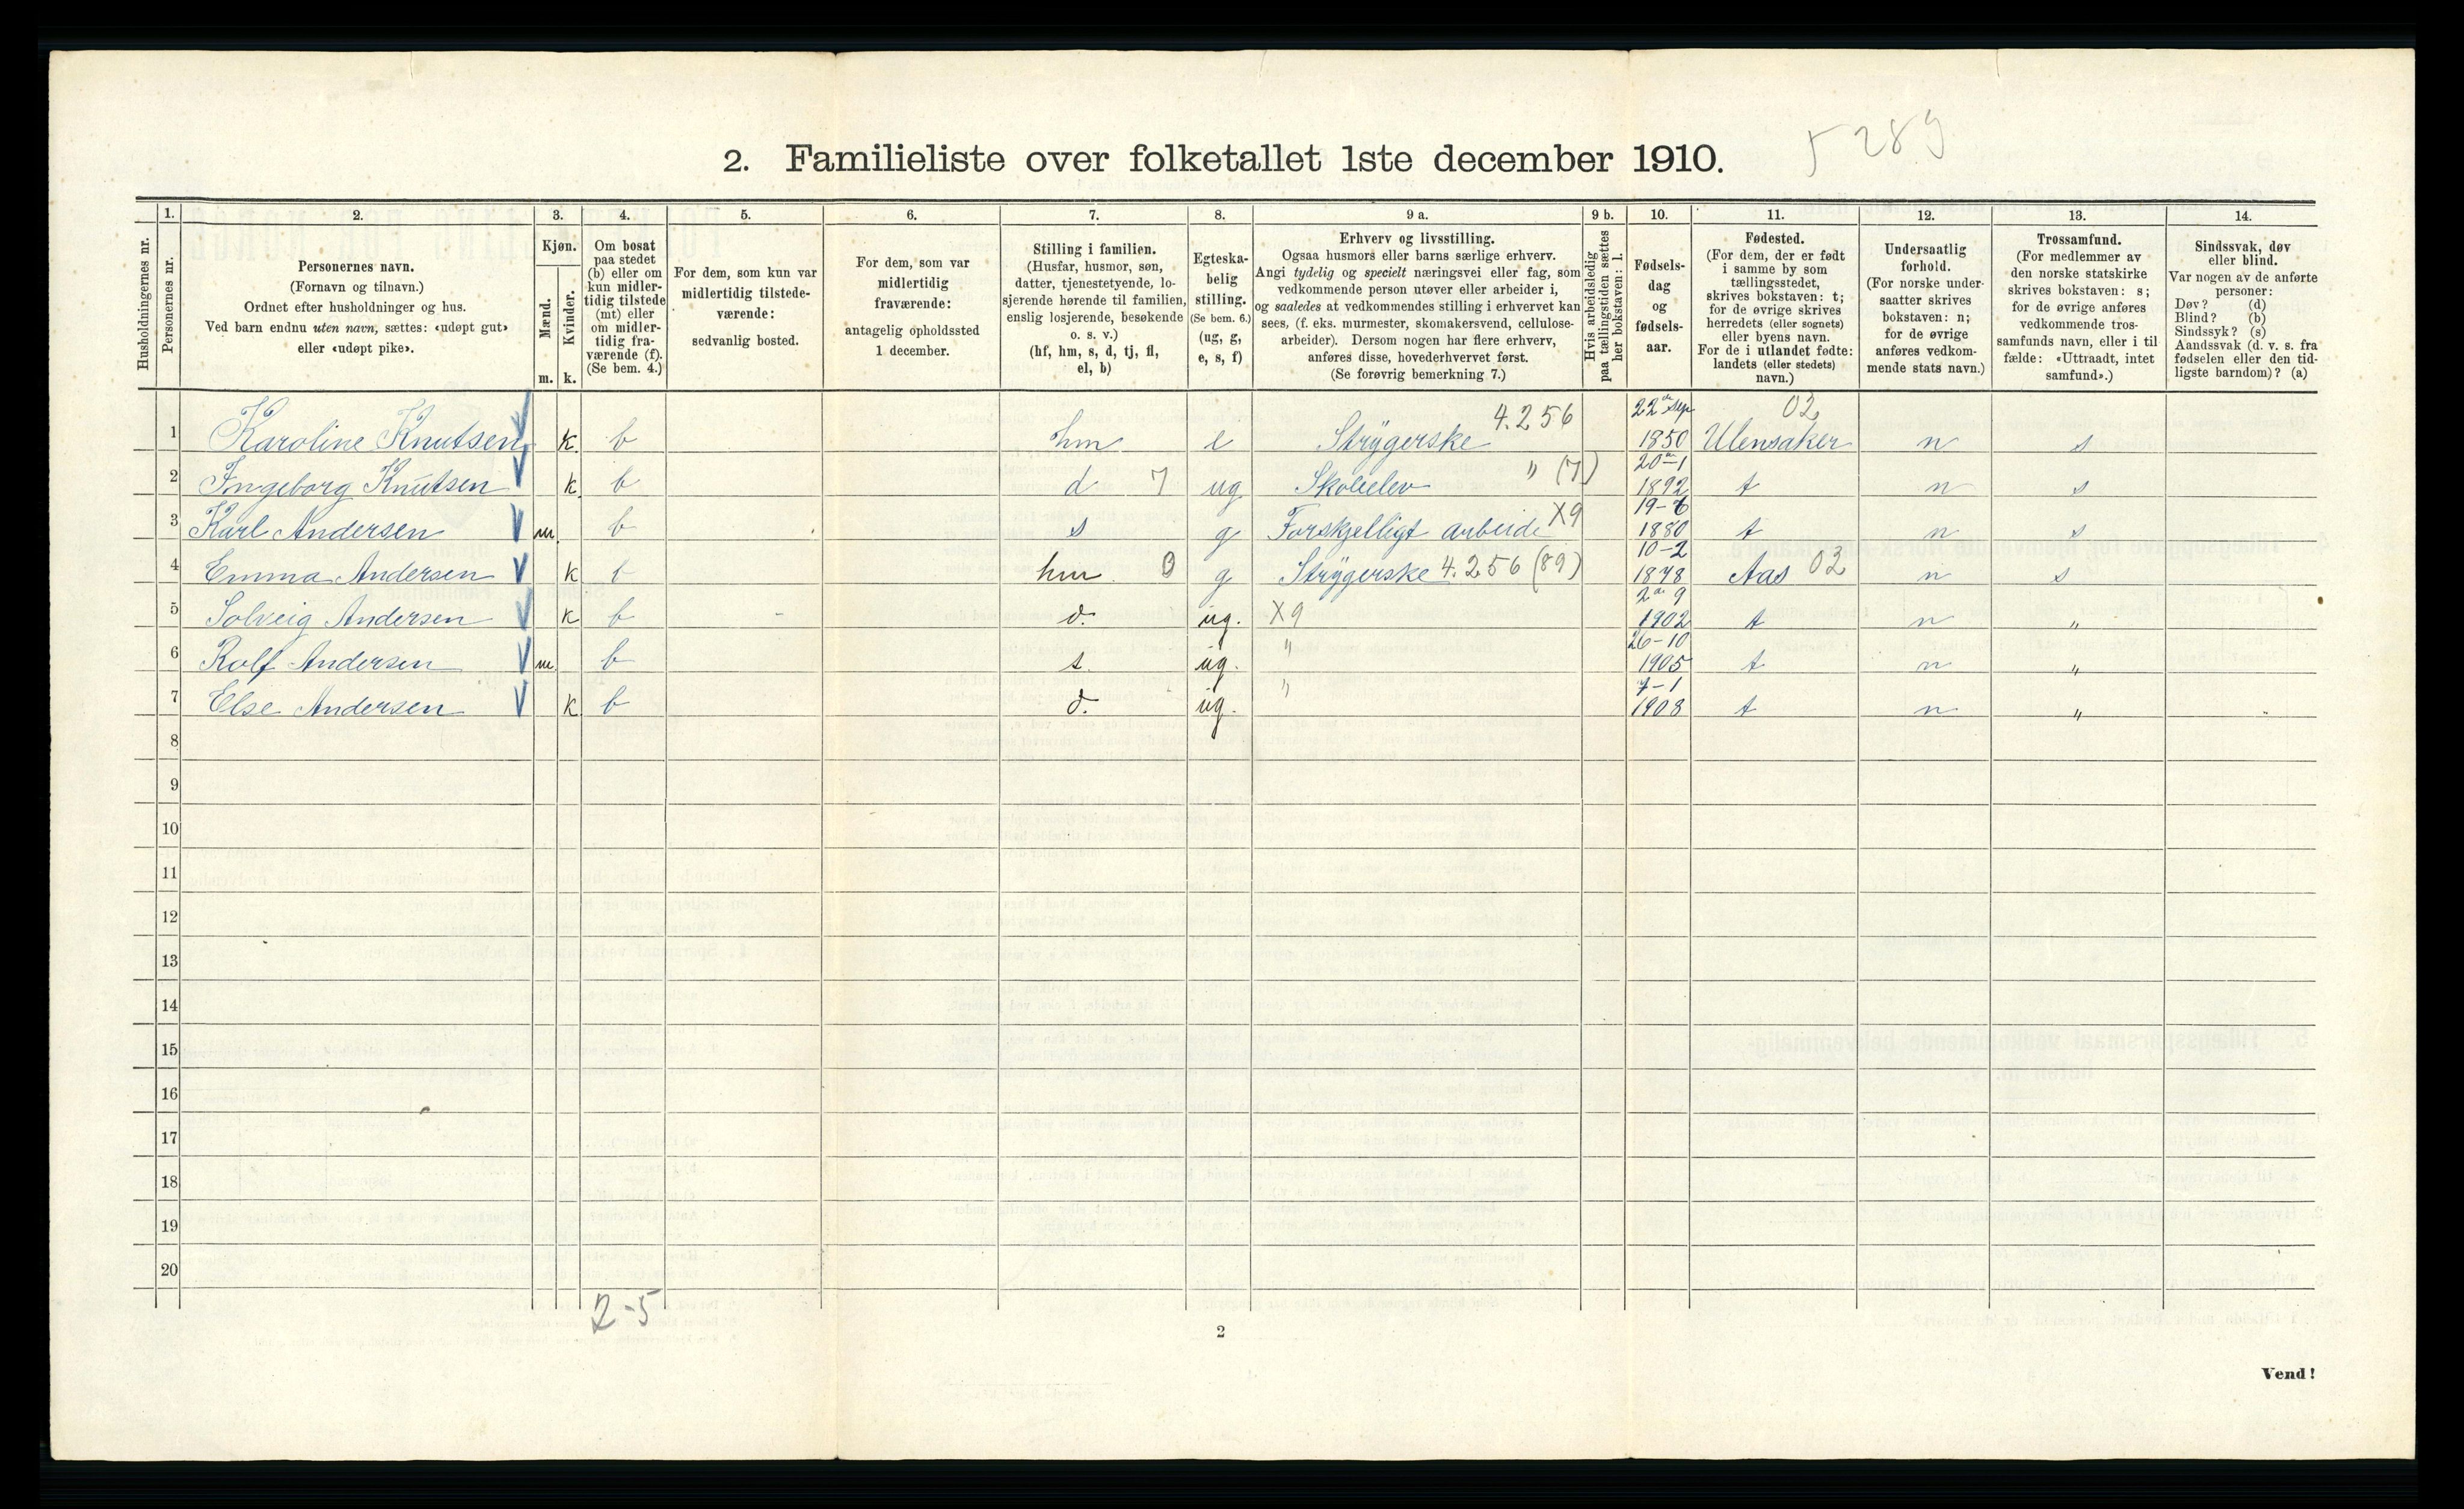 2. Familieliste over folketallet 1ste december 1910.
5289
Husholdningernes nr.
1.
Personernes nr.
2.
Personernes navn.
(Fornavn og tilnavn.)
Ordnet efter husholdninger og hus.
Ved barn endnu uten navn, sættes: «udøpt gut»
eller «udøpt pike».
3.
Kjøn.
Mænd.
Kvinder.
m. k.
4.
Om bosat
paa stedet
(b) eller om
kun midler-
tidig tilstede
(mt) eller
om midler-
tidig fra-
værende (f).
(Se bem. 4.)
5.
For dem, som kun var
midlertidig tilstede-
værende:
sedvanlig bosted.
6.
For dem, som var
midlertidig
fraværende:
antagelig opholdssted
1 december.
7.
Stilling i familien.
(Husfar, husmor, søn,
datter, tjenestetyende, lo-
sjerende hørende til familien,
enslig losjerende, besøkende
o. s. v.)
(hf, hm, s, d, tj, fl,
el, b)
8.
Egteska-
belig
stilling.
(Se bem. 6.)
(ug, g,
e, s, f)
9 a.
Erhverv og livsstilling.
Ogsaa husmors eller barns særlige erhverv.
Angi tydelig og specielt næringsvei eller fag, som
vedkommende person utøver eller arbeider i,
og saaledes at vedkommendes stilling i erhvervet kan
sees, (f. eks. murmester, skomakersvend, cellulose-
arbeider). Dersom nogen har flere erhverv,
anføres disse, hovederhvervet først.
(Se forøvrig bemerkning 7.)
9 b.
Hvis arbeidsledig
paa tællingstiden sættes
her bokstaven: l.
10.
Fødsels-
dag
og
fødsels-
aar.
11.
Fødested.
(For dem, der er født
i samme by som
tællingsstedet,
skrives bokstaven: t;
for de øvrige skrives
herredets (eller sognets)
eller byens navn.
For de i utlandet fødte:
landets (eller stedets)
navn.)
12.
Undersaatlig
forhold.
(For norske under-
saatter skrives
bokstaven: n;
for de øvrige
anføres vedkom-
mende stats navn.)
13.
Trossamfund.
(For medlemmer av
den norske statskirke
skrives bokstaven: s;
for de øvrige anføres
vedkommende tros-
samfunds navn, eller i til
fælde: «Uttraadt, intet
samfund».)
14.
Sindssvak, døv
eller blind.
Var nogen av de anførte
personer:
Døv? (d)
Blind? (b)
Sindssyk? (s)
Aandssvak (d. v. s. fra
fødselen eller den tid-
ligste barndom)? (a)
1 Karoline Knutsen k. b hm e Strygerske 4.256 22de sep 1850 Ulensaker 02 n s
2 Ingeborg Knutsen k b d 7 ug Skoleelev " (7) 1892 t n s
3 Karl Andersen m. b s g Forskjelligt arbeide X9 1880 t n s
4 Emma Andersen k b hm g Strygerske 4.256 (89) 10-2 1878 Aas 03 n s
5 Solveig Andersen k b d. ug. X9 2de 9 1902 t n "
6 Rolf Andersen m. b s. ug. " 26-10 1905 t n "
7 Else Andersen k b d. ug. " 7-1 1908 t n "
8
9
10
11
12
13
14
15
16
17
18
19
20
2-5
2
Vend!